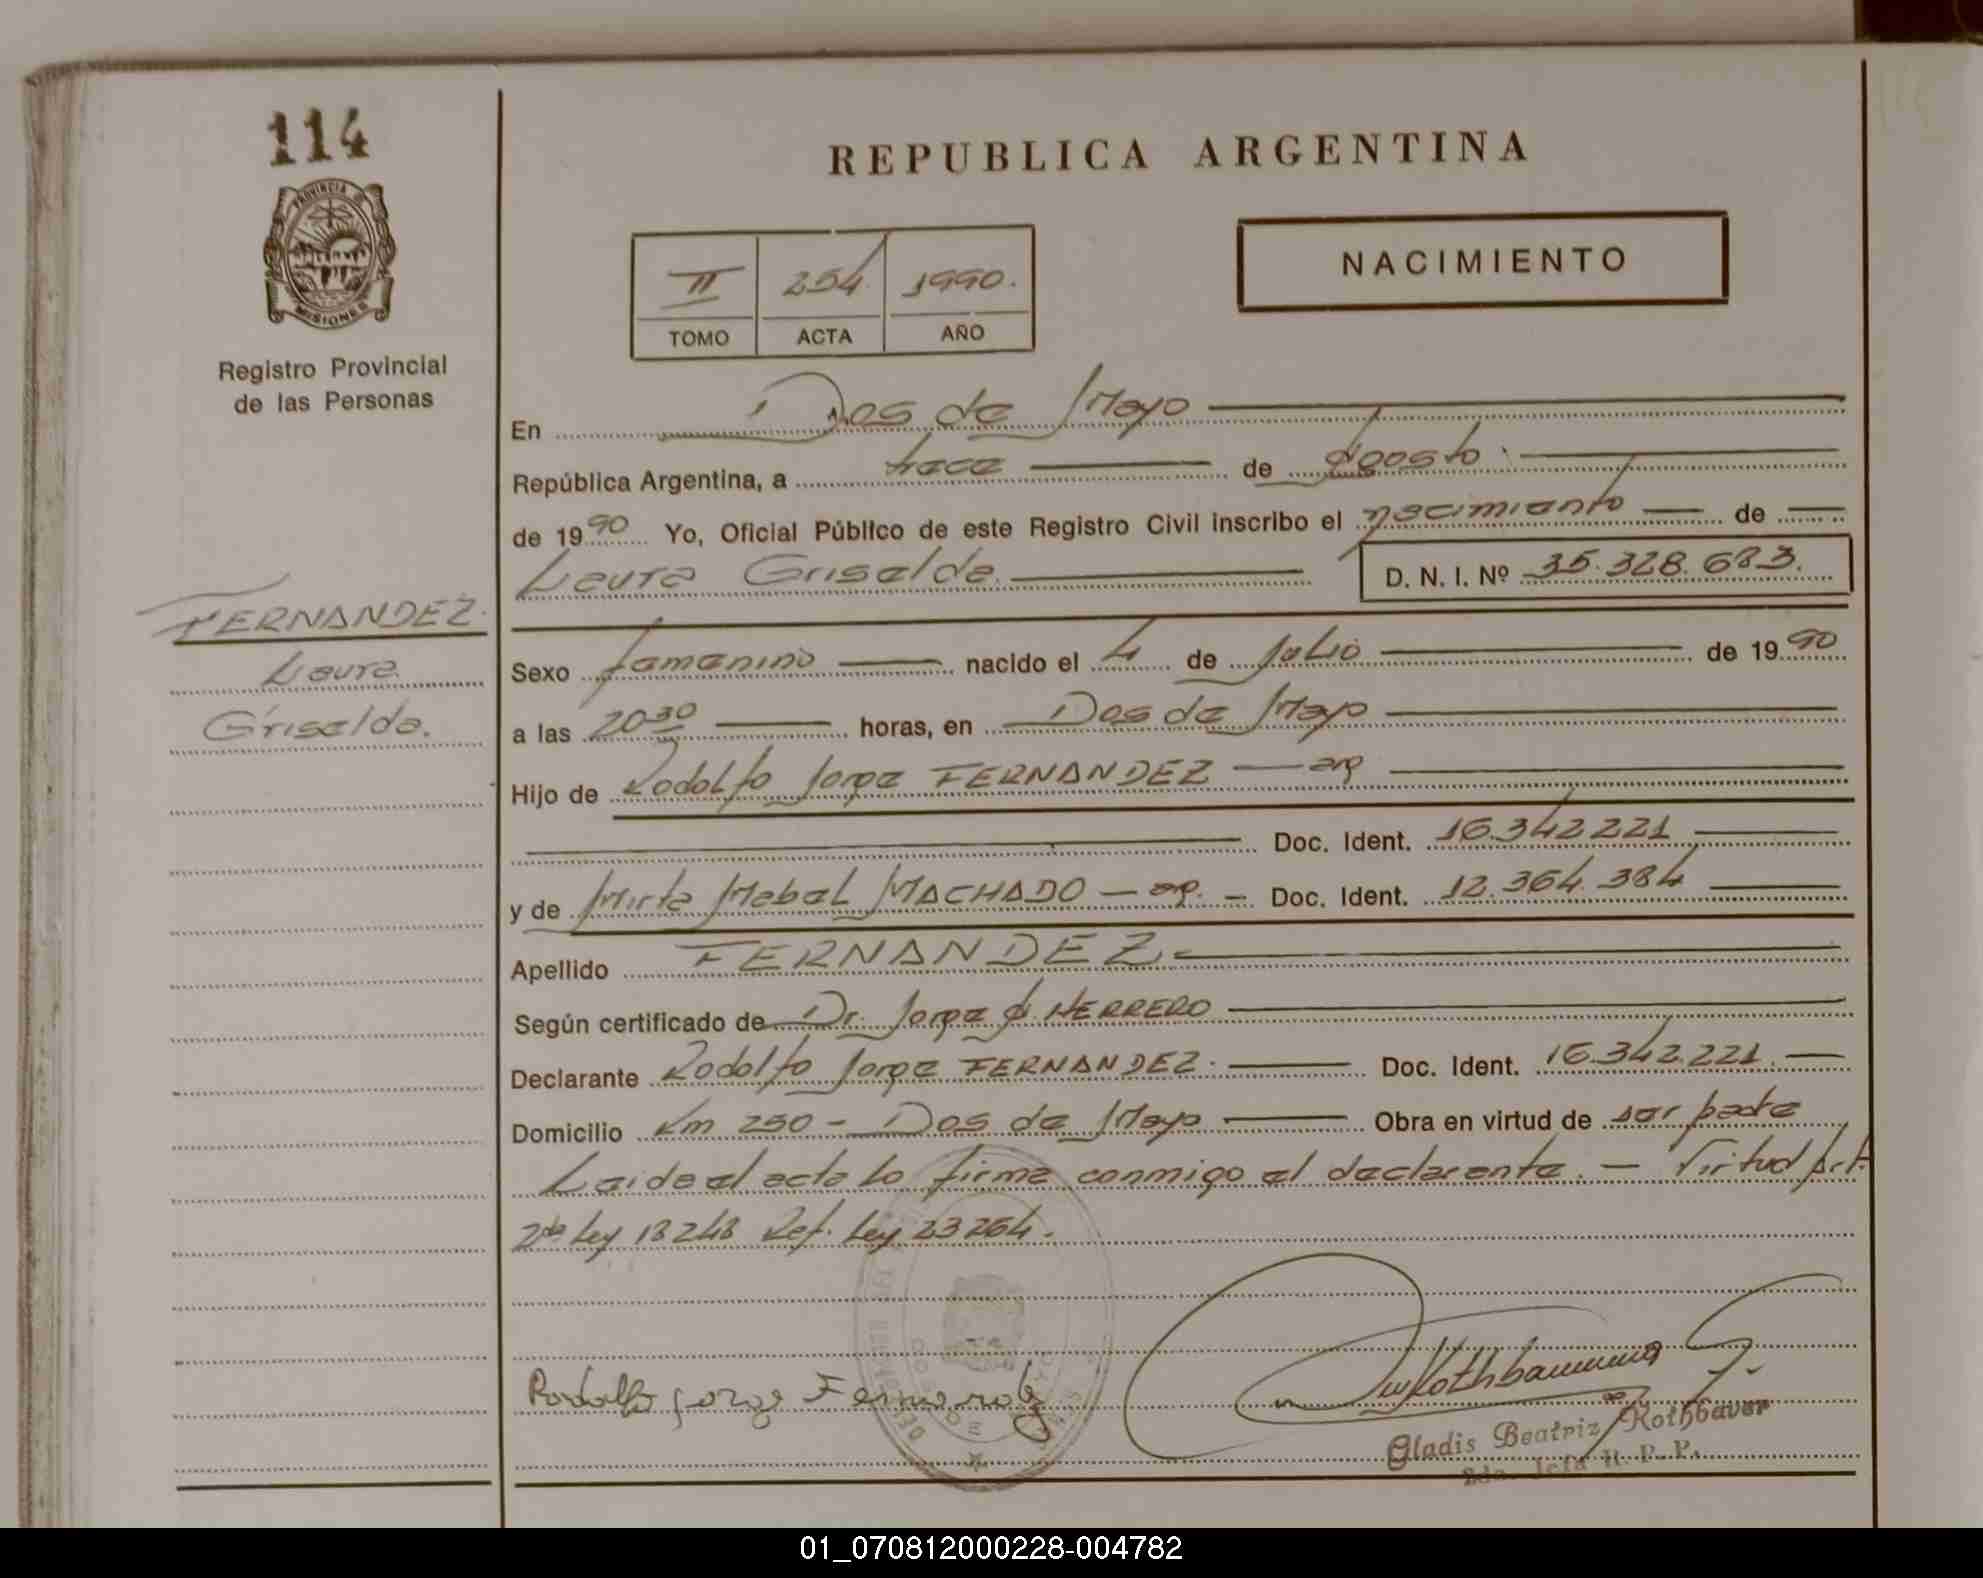 114
PROVINCIA DE
MISIONES
Registro Provincial
de las Personas
FERNANDEZ.
Laura
Griselda.
REPUBLICA ARGENTINA
NACIMIENTO
II 254 1990.
TOMO ACTA AÑO
En Dos de Mayo
República Argentina, a trece de Agosto
de 1990 Yo, Oficial Público de este Registro Civil inscribo el nacimiento de
Laura Griselda. D. N. I. Nº 35.328.683.
Sexo femenino nacido el 4 de Julio de 1990
a las 20 30 horas, en Dos de Mayo
Hijo de Rodolfo Jorge FERNANDEZ — arg
Doc. Ident. 16.342.221
y de Mirta Mabel MACHADO — arg. — Doc. Ident. 12.364.384
Apellido FERNANDEZ
Según certificado de Dr. Jorge A. HERRERO
Declarante Rodolfo Jorge FERNANDEZ. Doc. Ident. 16.342.221.
Domicilio Km 250 - Dos de Mayo Obra en virtud de ser padre
Leida el acta lo firma conmigo el declarante. — Virtud Art.
2do Ley 18248 Ref. Ley 23264.
Rodolfo Jorge Fernandez
Gladis Beatriz Rothbauer
2da. Jefa R. P. P.
01_070812000228-004782